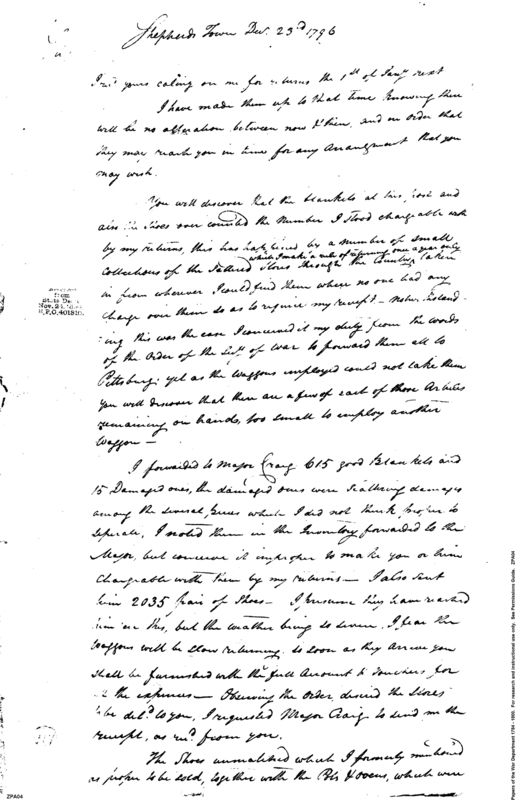 Shepherds Town Decr. 23d 1796
Recd yours calling on me for returns the 1st of Jany next
I have made them up to that time knowing there
will be no alteration between now & then, and in order that
they may reach you in time for any Arrangment that you
may wish.
You will discover that the blankets at this post and
also the Shoes over counted the Number I stood chargeable with
by my returns, this has happened by a number of small
which I make a rule of returning once a year only
collections of the scattered Stores through the Country taken
in from wherever I could find them where no one had any
charge over them so as to require my receipt — notwithstand-
ing this was the case I conceived it my duty from the words
of the Order of the Secy. of War to forward them all to
Pittsburg: yet as the Waggons employed could not take them
you will discover that there are a few of each of those Articles
remaining on hands, too small to employ another
Waggon —
I forwarded to Major Craig 615 good Blankets and
15 Damaged ones, the damaged ones were scattering damages
among the several pieces which I did not think proper to
seperate, I noted them in the Inventory forwarded to the
Major, but conceive it improper to make you or him
chargeable with them by my returns — I also sent
him 2035 pair of Shoes — I presume they have reached
him ere this, but the weather being so severe, I fear the
Waggons will be slow returning, so soon as they arrive you
shall be furnished with the full Amount & Vouchers for
the expences — Observing the Order desired the Stores
to be deld. to you, I requested Major Craig to send me the
receipt, as recd. from you.
The Shoes unmatched which I formerly mentioned
as proper to be sold, together with the Pots & ovens, which were
from
State Dept.
ZPA04
Papers of the War Department 1784 - 1800. For research and instructional use only. See Permissions Guide. ZPA04